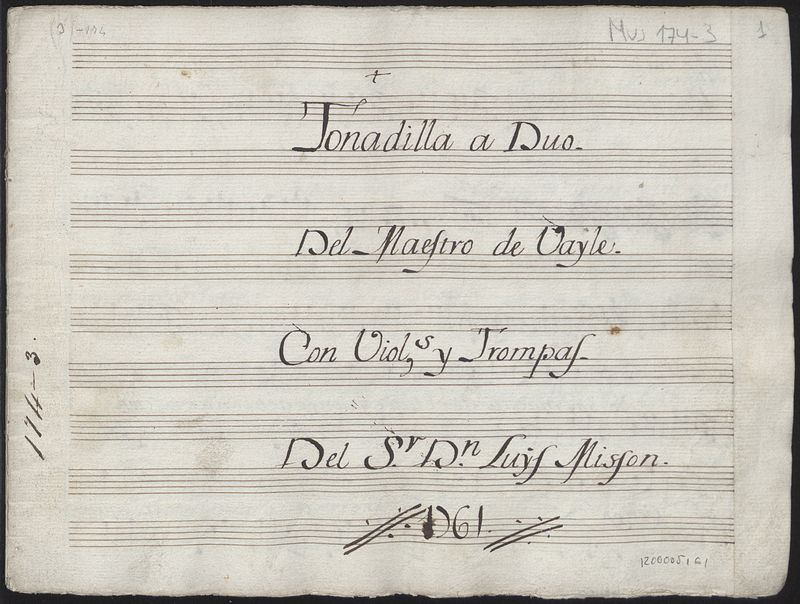 (3) -174
Mus 174-3
1
+
Tonadilla a Duo.
Del Maeſtro de Vayle.
Con Viol,s y Trompaſ
Del S.r D.n Luÿſ Miſson.
1761.
174-3.
1200005161